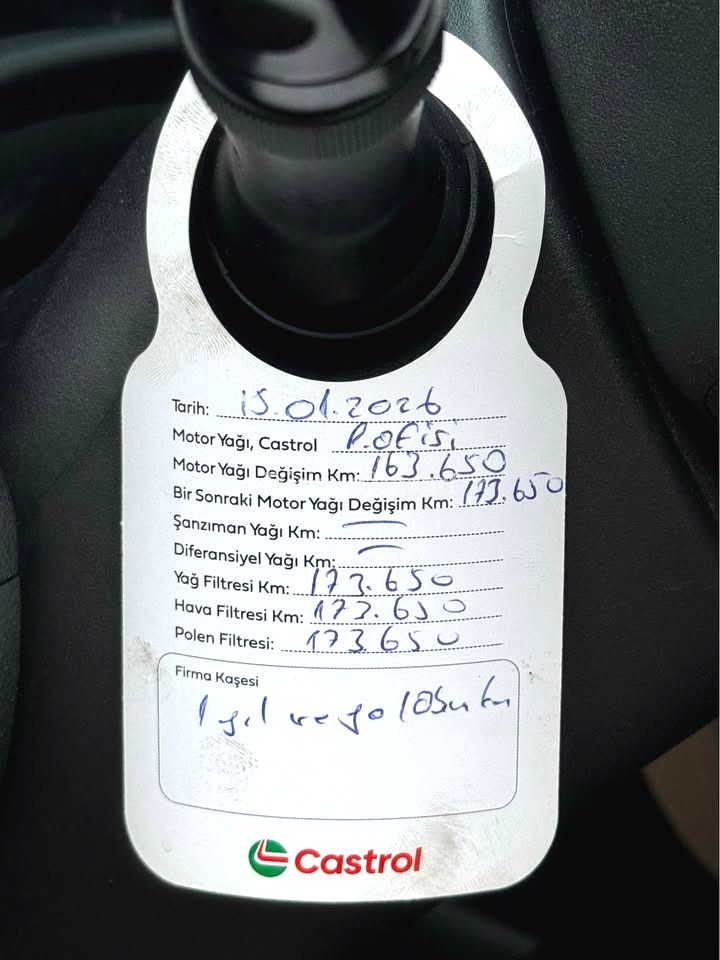 Tarih: 15.01.2026
Motor Yağı, Castrol P.Ofisi
Motor Yağı Değişim Km: 163.650
Bir Sonraki Motor Yağı Değişim Km: 173.650
Şanzıman Yağı Km: —
Diferansiyel Yağı Km: —
Yağ Filtresi Km: 173.650
Hava Filtresi Km: 173.650
Polen Filtresi: 173650
Firma Kaşesi
1 yıl veya 10Bin km
Castrol